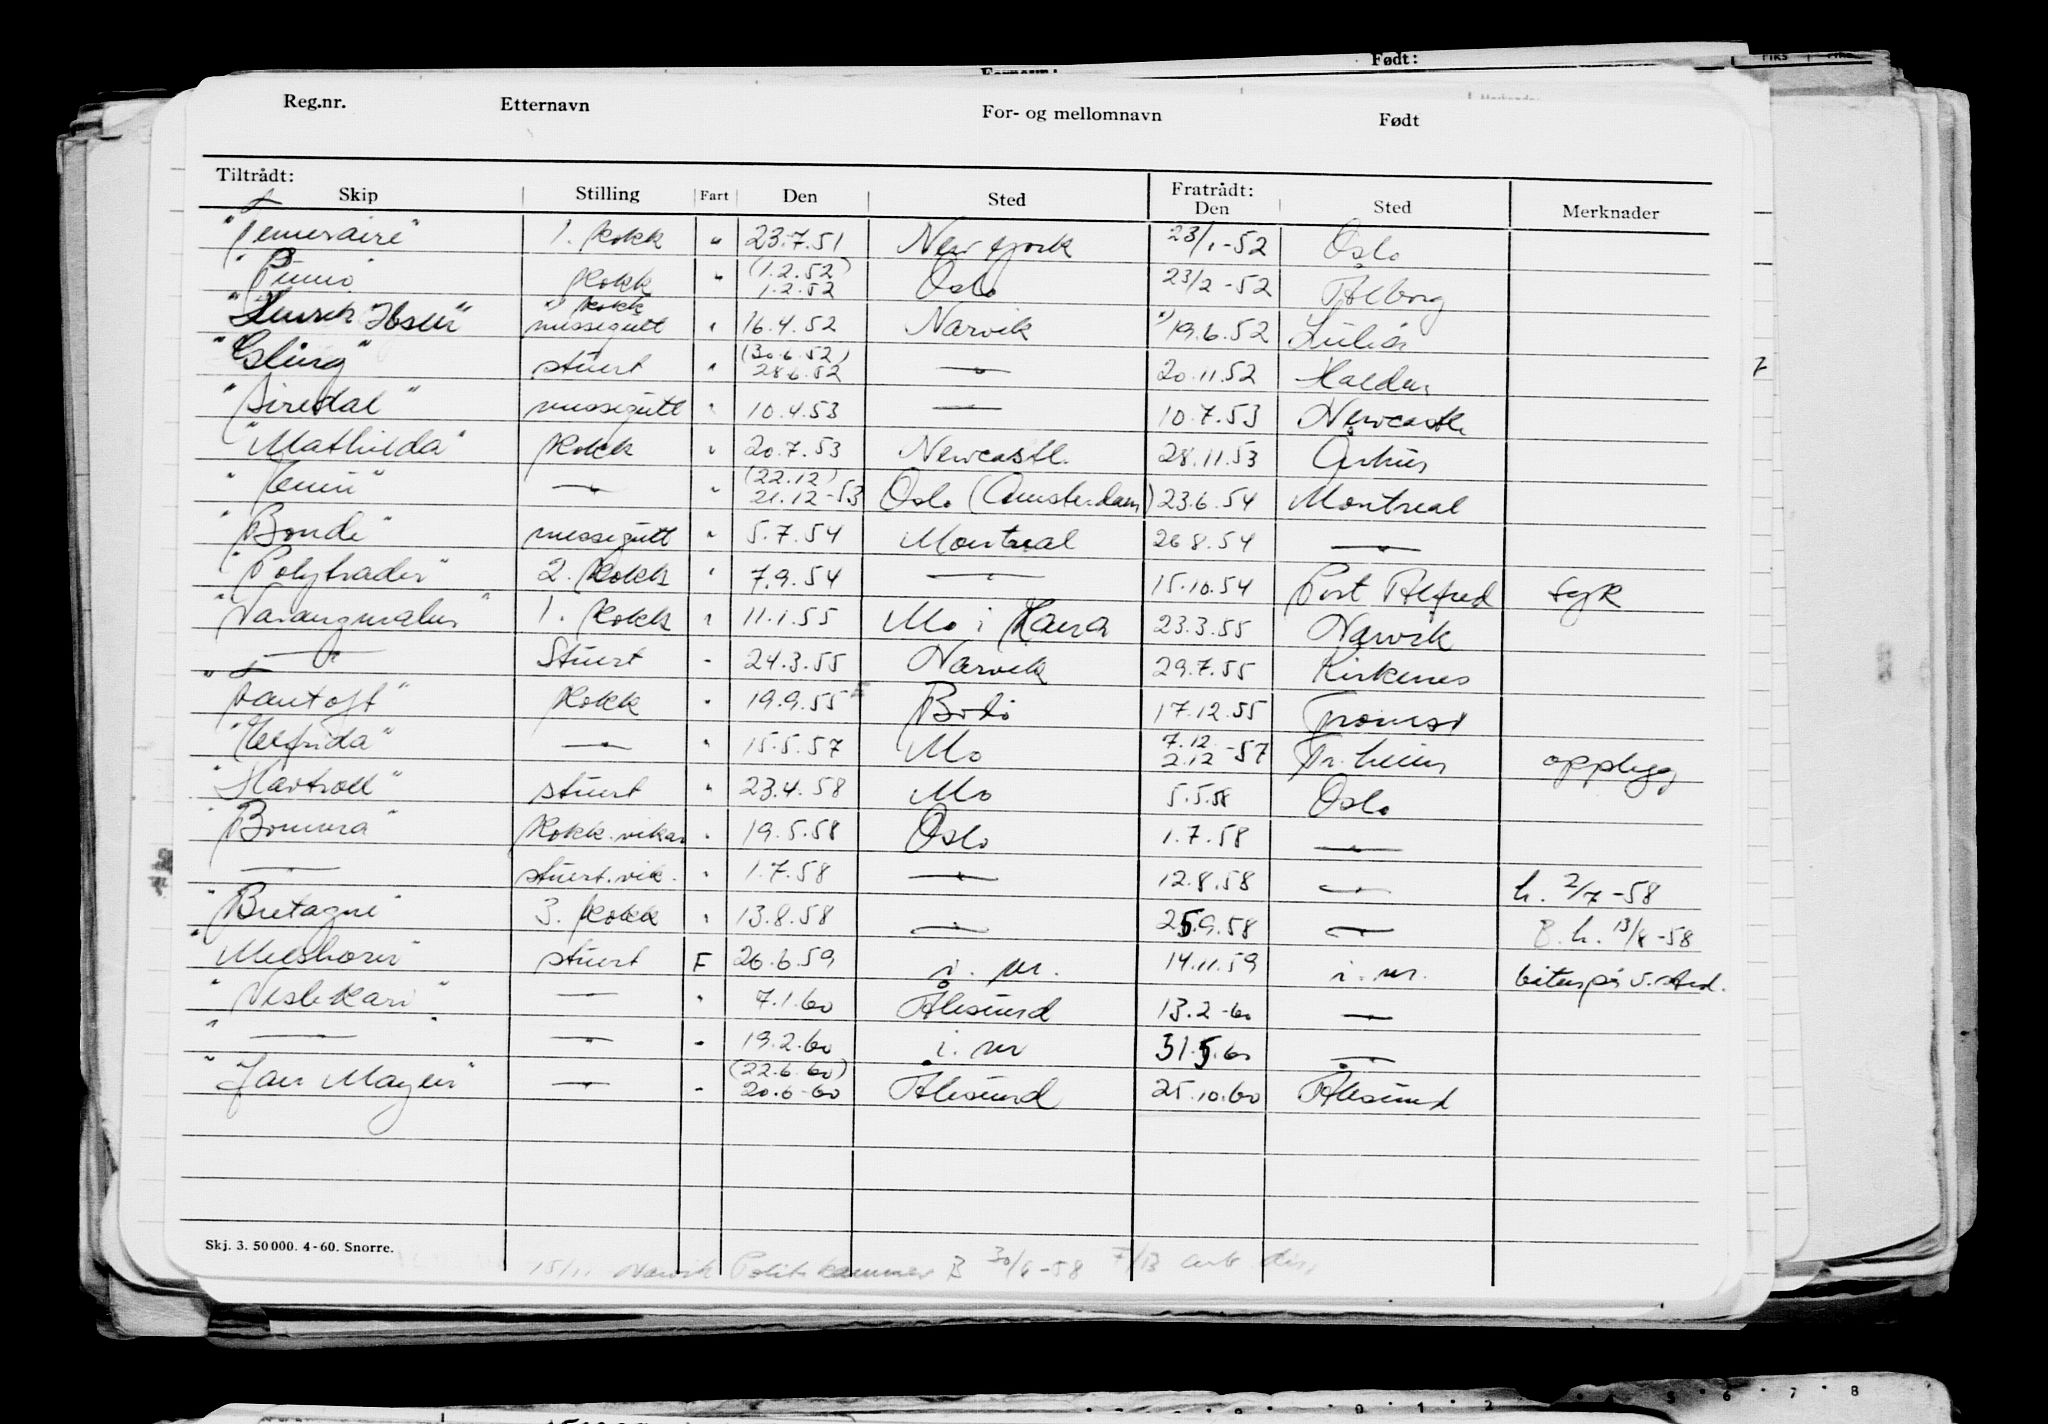 Født:
Reg.nr. Etternavn For- og mellomnavn Født
Tiltrådt: Fratrådt:
Skip Stilling Fart Den Sted Den Sted Merknader
"Temeraire" 1. kokk " 23.7.51 New York 23/1-52 Oslo
(1.2.52)
kokk " 1.2.52 Oslo 23/2-52 Ålborg
"Henrik Ibsen" kokk messegutt " 16.4.52 Narvik 19.6.52
(30.6.52)
stuert " 28.6.52 — " — 20.11.52 Halden
"Siredal" messegutt " 10.4.53 — " — 10.7.53 Newcastle
"Mathilda" kokk " 20.7.53 Newcastle 28.11.53 Århus
(22.12)
— " — " 21.12-53 Oslo (Amsterdam) 23.6.54 Montreal
"Bonde" messegutt " 5.7.54 Montreal 26.8.54 — " —
"Polytrader" 2. kokk " 7.9.54 — " — 15.10.54 Port Alfred syk
"Varangmalm" 1. kokk " 11.1.55 Mo i Rana 23.3.55 Narvik
— " — Stuert " 24.3.55 Narvik 29.7.55 Kirkenes
"Fantoft" kokk " 19.9.55 Bodø 17.12.55 Tromsø
"Elfrida" — " — " 15.5.57 Mo 7.12 2.12-57 Tr.heim opplegg
"Havtroll" stuert " 23.4.58 Mo 5.5.58 Oslo
"Bomma" kokk.vikar " 19.5.58 Oslo 1.7.58 — " —
— " — stuert.vik. " 1.7.58 — " — 12.8.58 — " — h. 2/7-58
"Bretagne" 3. kokk " 13.8.58 — " — 25.9.58 — " — B.h. 13/8-58
"Melshorn" stuert F 26.6.59 i. nr. 14.11.59 i. nr.
"Veslekari" — " — " 7.1.60 Ålesund 13.2-60 — " —
" — " — " — " — " 19.2.60 i. nr 31.5.60 — " —
(22.6.60)
"Jan Mayen" — " — " 20.6-60 Ålesund 25.10.60 Ålesund
Skj. 3. 50 000. 4-60. Snorre.
Narvik Politikammer B 30/6-58